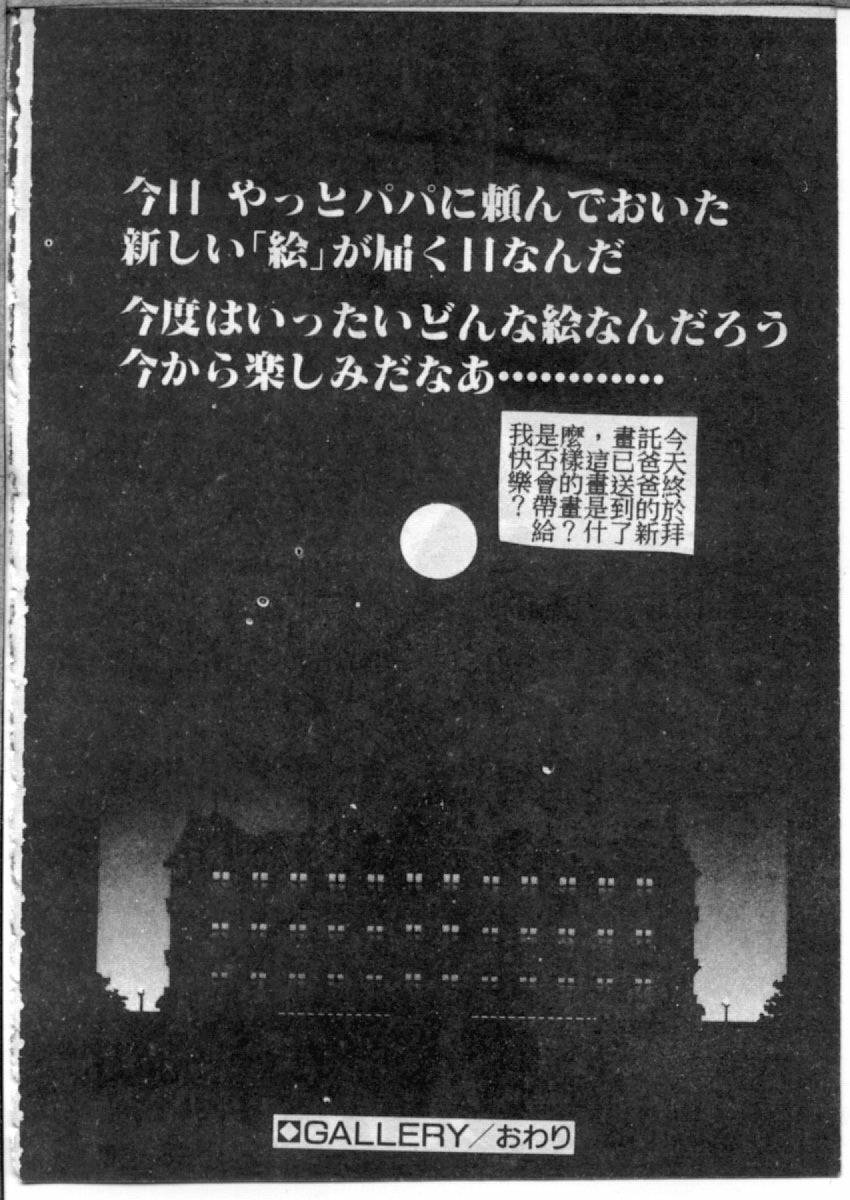 今日 やっとパパに頼んでおいた
新しい「絵」が届く日なんだ
今度はいったいどんな絵なんだろう
今から楽しみだなあ…………
今天終於拜
託爸爸的新
畫已送到了
，這畫是什
麼樣的畫？
是否會帶給
我快樂？
◆GALLERY／おわり